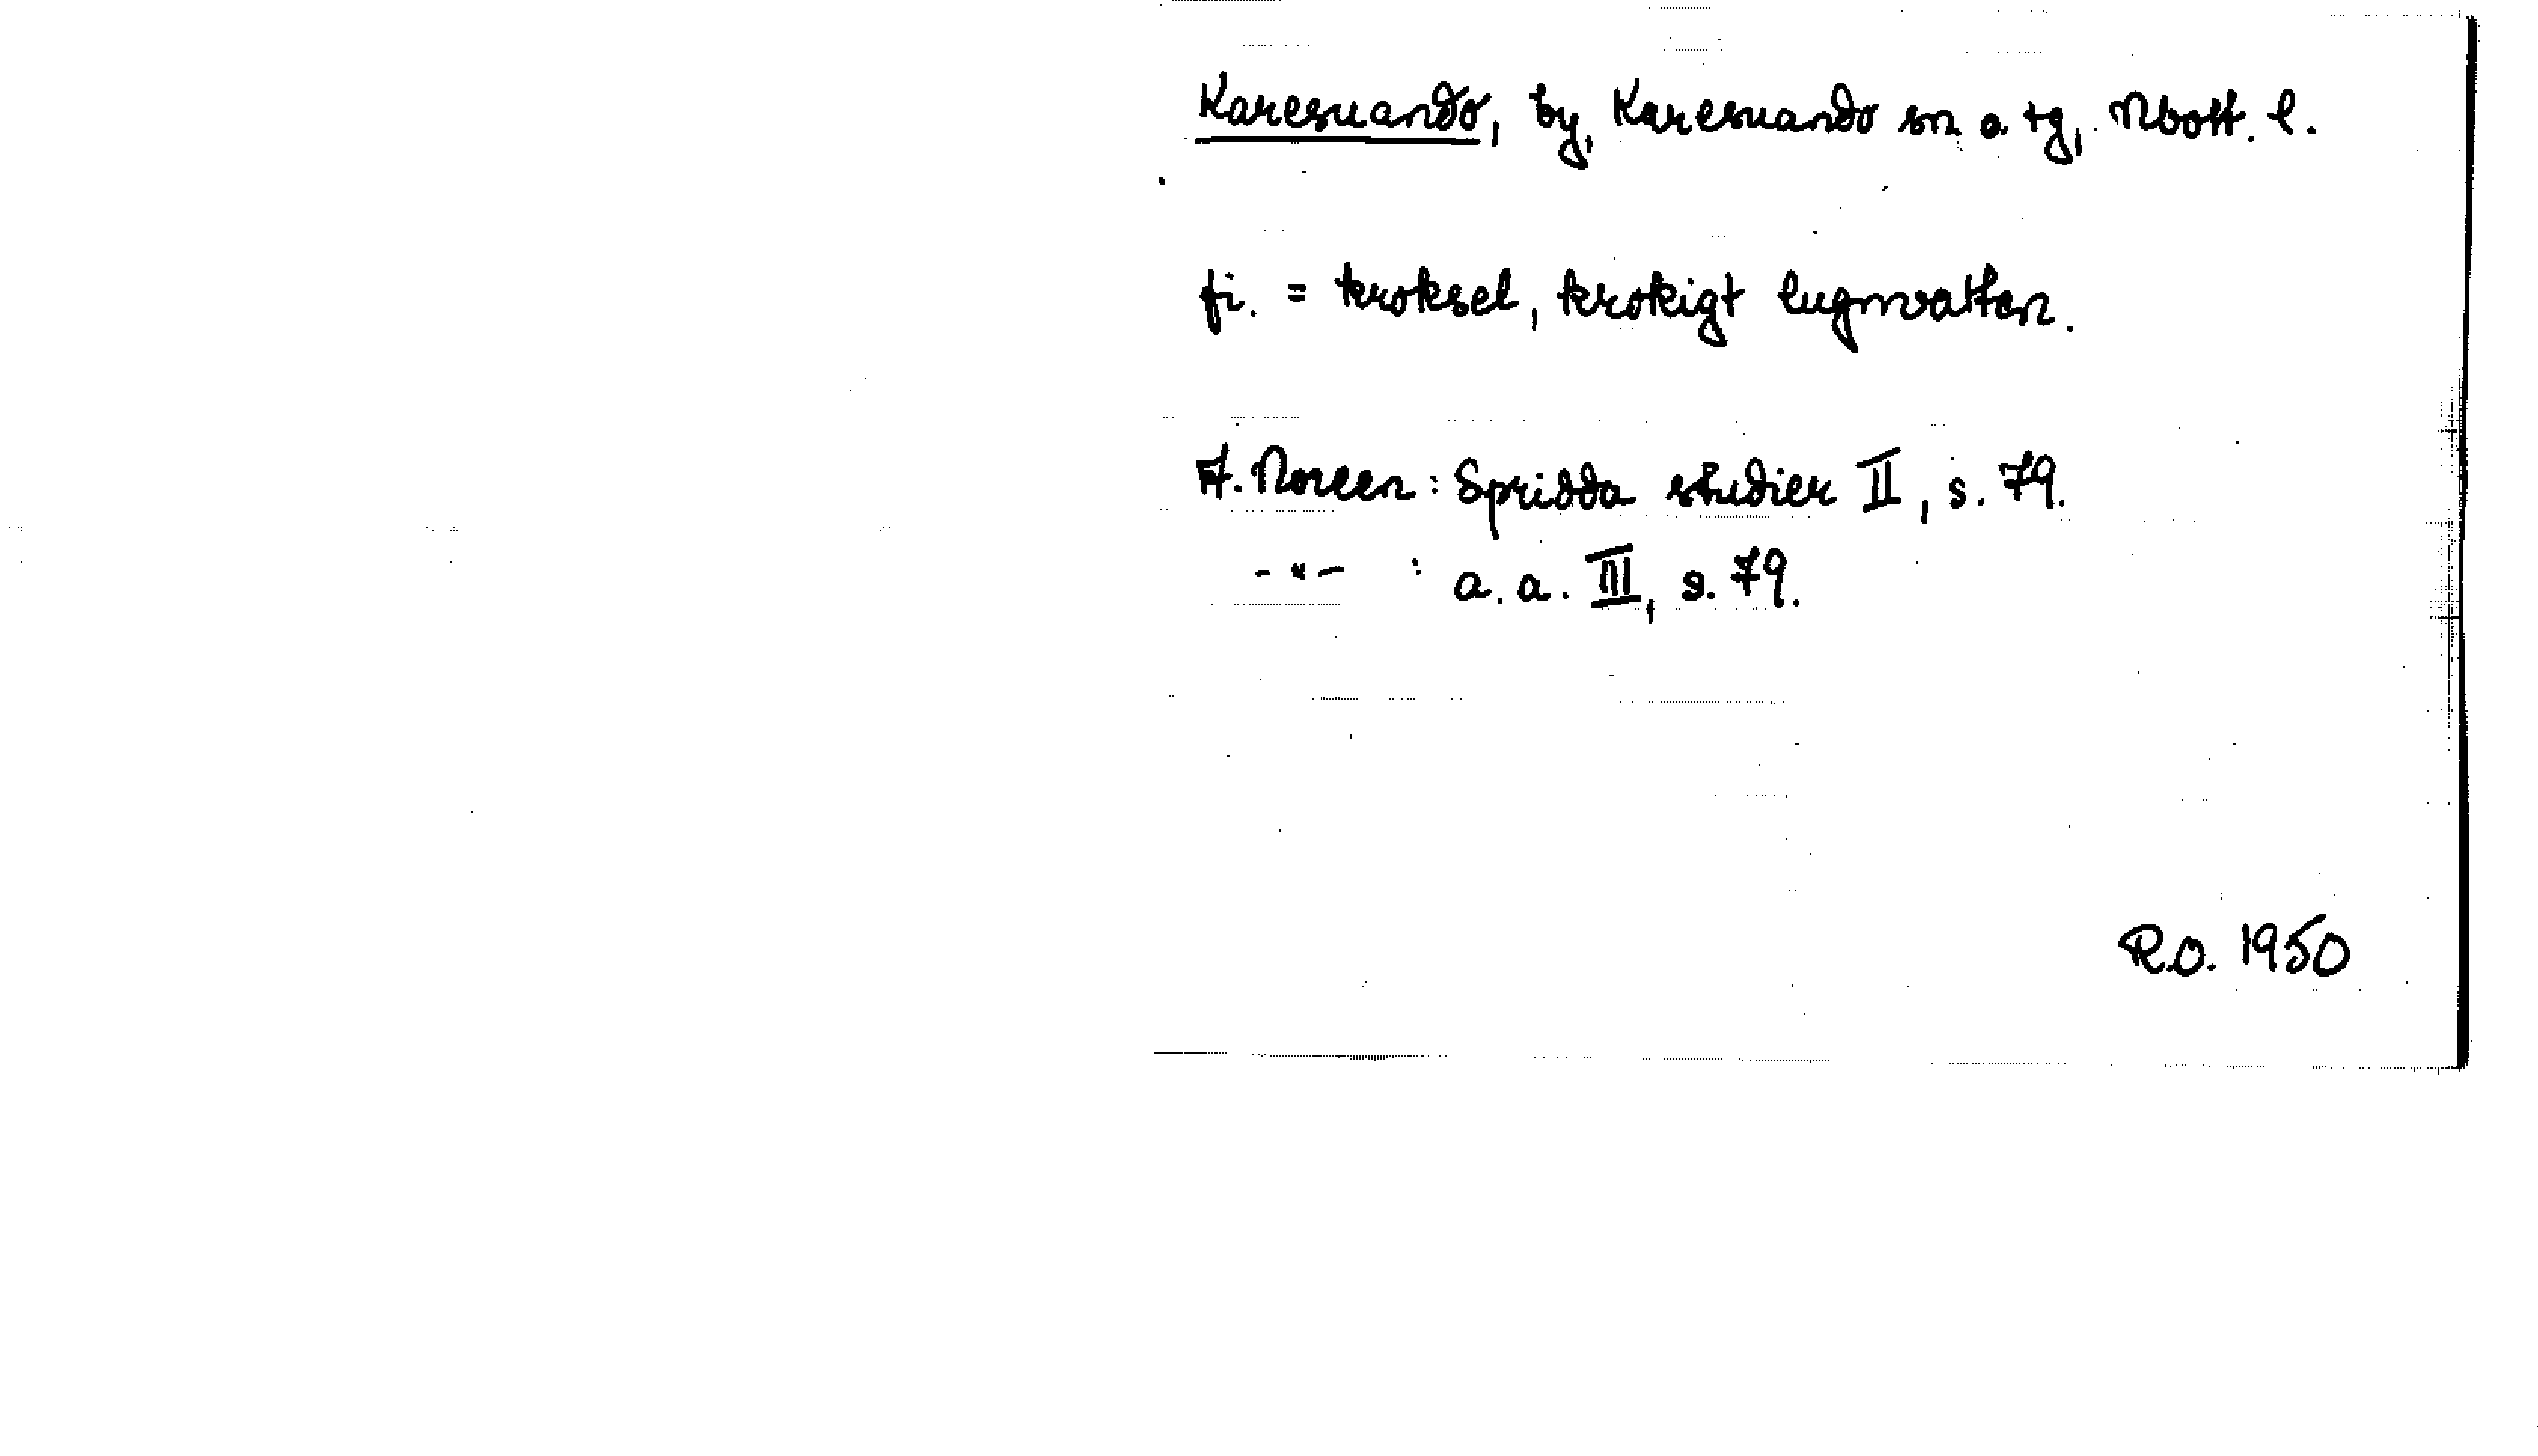 Karesuando, by, Karesuando sn o. tg, Nbott. l.
fi. = kroksel, krokigt lugnvatten.
A. Noreen: Spridda studier II, s. 79.
-"- : a. a. III, s. 79.
R.O. 1950